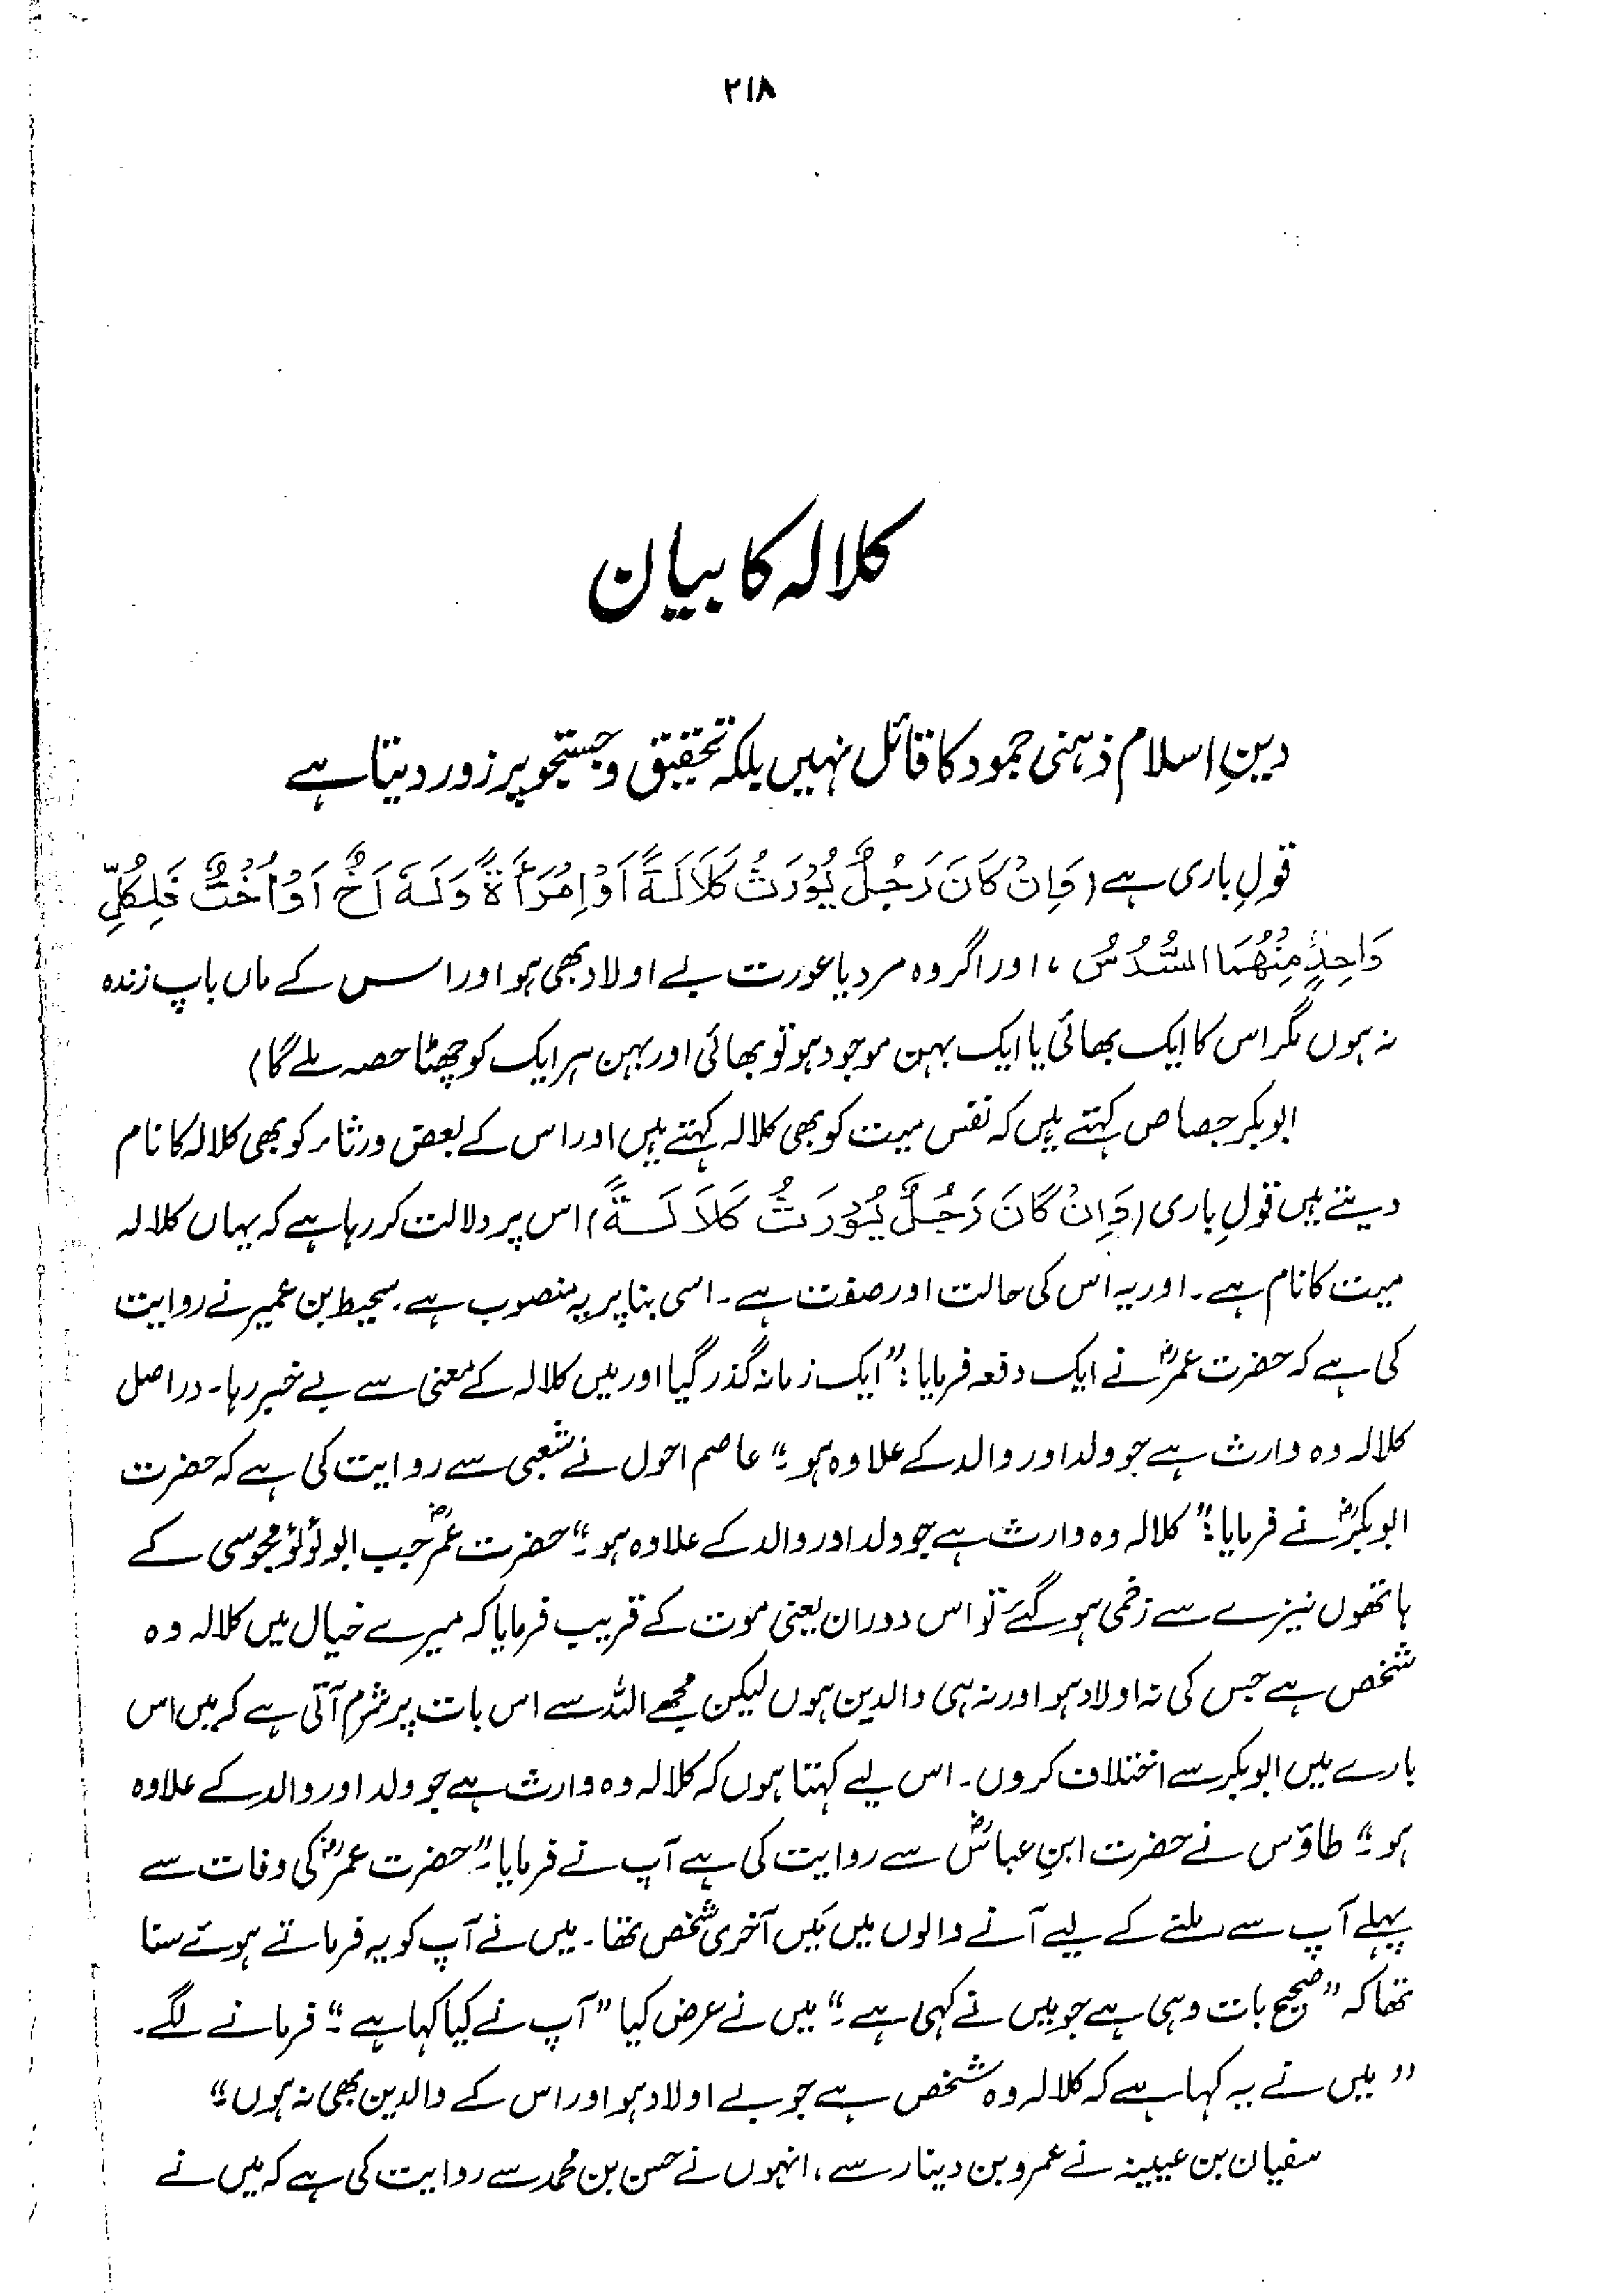 ۲۱۸
کلالہ کا بیان
دینِ اسلام ذہنی جمود کا قائل نہیں بلکہ تحقیق و جستجو پر زور دیتا ہے
قولِ باری ہے (وَاِنْ کَانَ رَجُلٌ یُّوْرَثُ کَلَالَۃً اَوِامْرَأَۃٌ وَلَہٗ اَخٌ اَوْاُخْتٌ فَلِکُلِّ
وَاحِدٍ مِنْہُمَا السُّدُسُ ، اور اگر وہ مرد یا عورت بے اولاد بھی ہو اور اس کے ماں باپ زندہ
نہ ہوں مگر اس کا ایک بھائی یا ایک بہن موجود ہو تو بھائی اور بہن ہر ایک کو چھٹا حصہ ملے گا)
ابوبکر جصاص کہتے ہیں کہ نفس میت کو بھی کلالہ کہتے ہیں اور اس کے بعض ورثاء کو بھی کلالہ کا نام
دیتے ہیں قولِ باری (وَاِنْ کَانَ رَجُلٌ یُّوْرَثُ کَلَالَۃً) اس پر دلالت کر رہا ہے کہ یہاں کلالہ
میت کا نام ہے۔ اور یہ اس کی حالت اور صفت ہے۔ اسی بنا پر یہ منصوب ہے۔ سمیط بن عمیر نے روایت
کی ہے کہ حضرت عمرؓ نے ایک دفعہ فرمایا: "ایک زمانہ گذر گیا اور میں کلالہ کے معنی سے بے خبر رہا۔ دراصل
کلالہ وہ وارث ہے جو ولد اور والد کے علاوہ ہو۔" عاصم احول نے شعبی سے روایت کی ہے کہ حضرت
ابوبکرؓ نے فرمایا: "کلالہ وہ وارث ہے جو ولد اور والد کے علاوہ ہو۔" حضرت عمرؓ جب ابولؤلؤ مجوسی کے
ہاتھوں نیزے سے زخمی ہو گئے تو اس دوران یعنی موت کے قریب فرمایا کہ میرے خیال میں کلالہ وہ
شخص ہے جس کی نہ اولاد ہو اور نہ ہی والدین ہوں لیکن مجھے اللہ سے اس بات پر شرم آتی ہے کہ میں اس
بارے میں ابوبکر سے اختلاف کروں۔ اس لیے کہتا ہوں کہ کلالہ وہ وارث ہے جو ولد اور والد کے علاوہ
ہو۔" طاؤس نے حضرت ابنِ عباسؓ سے روایت کی ہے آپ نے فرمایا۔ "حضرت عمرؓ کی وفات سے
پہلے آپ سے ملنے کے لیے آنے والوں میں مَیں آخری شخص تھا۔ میں نے آپ کو یہ فرماتے ہوئے سنا
تھا کہ "صحیح بات وہی ہے جو میں نے کہی ہے۔" میں نے عرض کیا "آپ نے کیا کہا ہے۔" فرمانے لگے۔
"میں نے یہ کہا ہے کہ کلالہ وہ شخص ہے جو بے اولاد ہو اور اس کے والدین بھی نہ ہوں۔"
سفیان بن عیینہ نے عمرو بن دینار سے، انہوں نے حسن بن محمد سے روایت کی ہے کہ میں نے